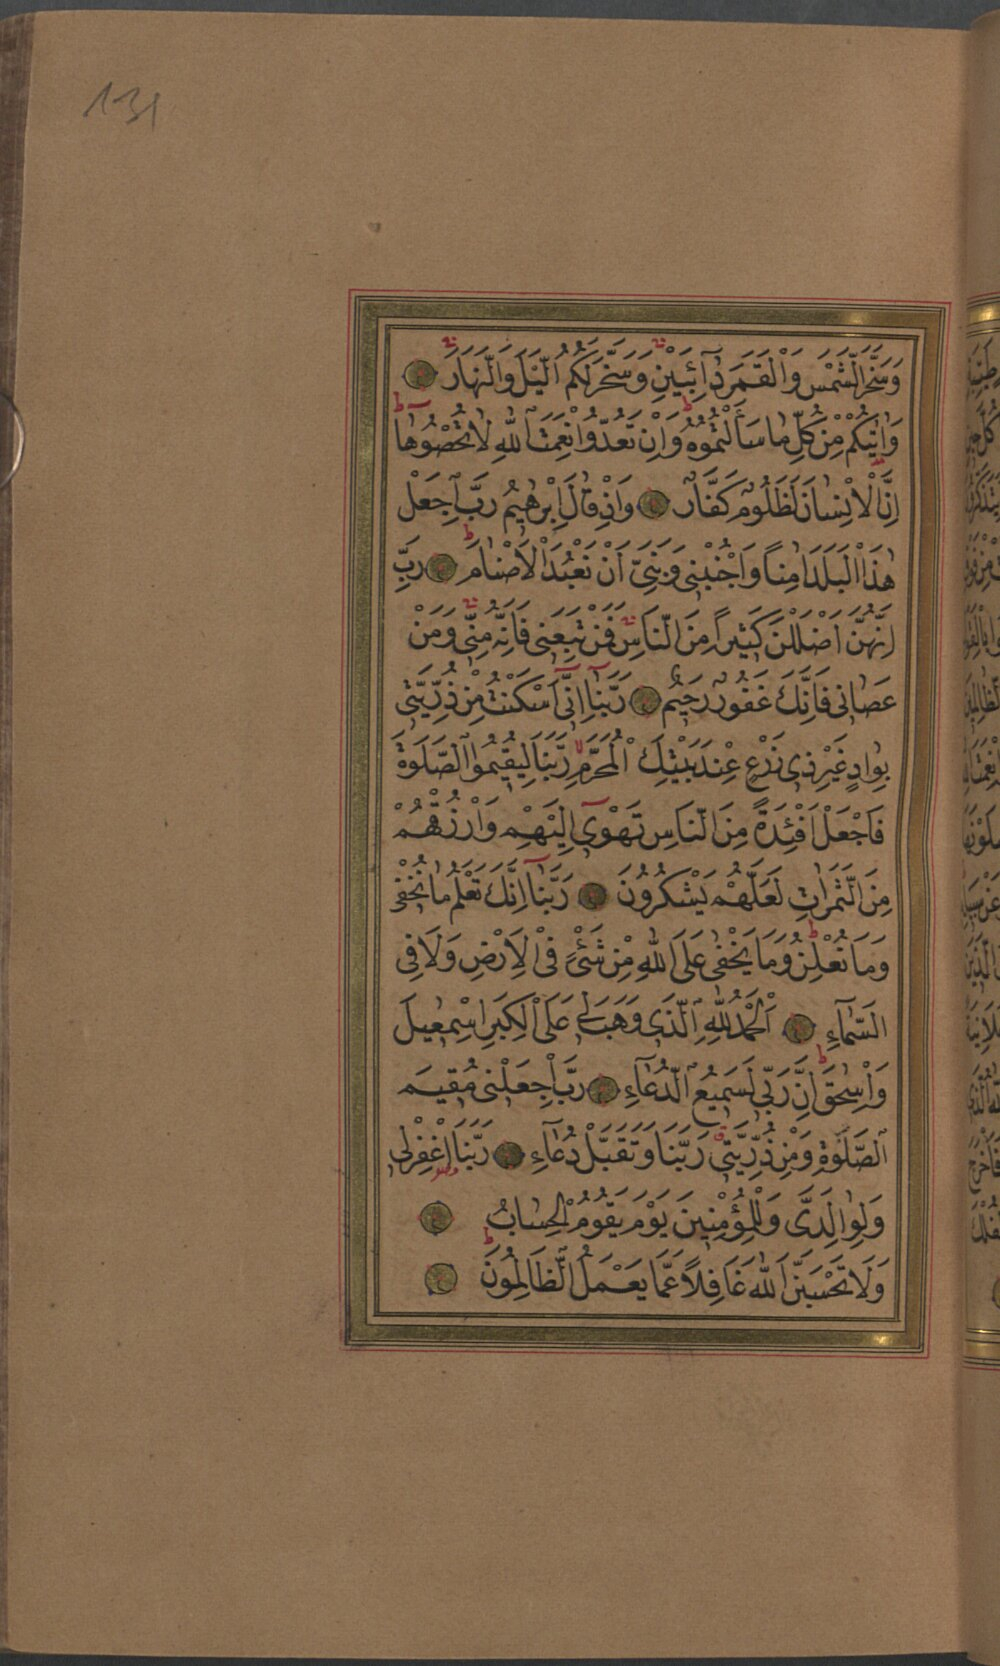 131
وَسَخَّرَ الشَّمْسَ وَالْقَمَرَ دَآئِبَيْنِ وَسَخَّرَ لَكُمُ الَّيْلَ وَالنَّهَارَ
وَاٰتٰيكُمْ مِنْ كُلِّ مَا سَاَلْتُمُوهُ وَاِنْ تَعُدُّوا نِعْمَتَ اللّٰهِ لَا تُحْصُوهَا
اِنَّ الْاِنْسَانَ لَظَلُومٌ كَفَّارٌ وَاِذْ قَالَ اِبْرٰهِيمُ رَبِّ اجْعَلْ
هٰذَا الْبَلَدَ اٰمِنًا وَاجْنُبْنِي وَبَنِيَّ اَنْ نَعْبُدَ الْاَصْنَامَ رَبِّ
اِنَّهُنَّ اَضْلَلْنَ كَثِيرًا مِنَ النَّاسِ فَمَنْ تَبِعَنِي فَاِنَّهُ مِنِّي وَمَنْ
عَصَانِي فَاِنَّكَ غَفُورٌ رَحِيمٌ رَبَّنَآ اِنِّيٓ اَسْكَنْتُ مِنْ ذُرِّيَّتِي
بِوَادٍ غَيْرِ ذِي زَرْعٍ عِنْدَ بَيْتِكَ الْمُحَرَّمِ رَبَّنَا لِيُقِيمُوا الصَّلٰوةَ
فَاجْعَلْ اَفْئِدَةً مِنَ النَّاسِ تَهْوِيٓ اِلَيْهِمْ وَارْزُقْهُمْ
مِنَ الثَّمَرَاتِ لَعَلَّهُمْ يَشْكُرُونَ رَبَّنَآ اِنَّكَ تَعْلَمُ مَا نُخْفِي
وَمَا نُعْلِنُ وَمَا يَخْفٰى عَلَى اللّٰهِ مِنْ شَيْءٍ فِي الْاَرْضِ وَلَا فِي
السَّمَآءِ اَلْحَمْدُ لِلّٰهِ الَّذِي وَهَبَ لِي عَلَى الْكِبَرِ اِسْمٰعِيلَ
وَاِسْحٰقَ اِنَّ رَبِّي لَسَمِيعُ الدُّعَآءِ رَبِّ اجْعَلْنِي مُقِيمَ
الصَّلٰوةِ وَمِنْ ذُرِّيَّتِي رَبَّنَا وَتَقَبَّلْ دُعَآءِ رَبَّنَا اغْفِرْ لِي
وَلِوَالِدَيَّ وَلِلْمُؤْمِنِينَ يَوْمَ يَقُومُ الْحِسَابُ
وَلَا تَحْسَبَنَّ اللّٰهَ غَافِلًا عَمَّا يَعْمَلُ الظَّالِمُونَ